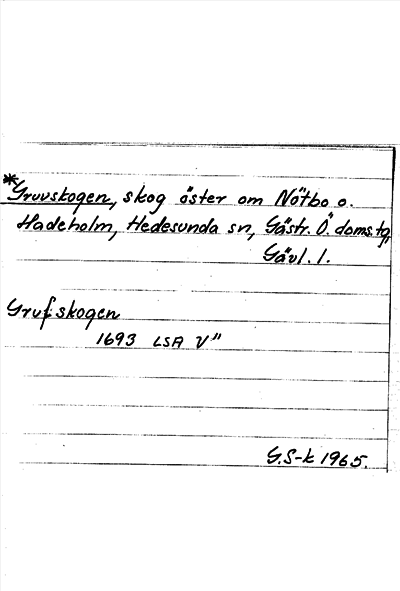 *Gruvskogen, skog öster om Nötbo o.
Hadeholm, Hedesunda sn, Gästr. Ö. doms. tg,
Gävl. l.
Grufskogen
1693 LSA V"
G.S-k 1965.